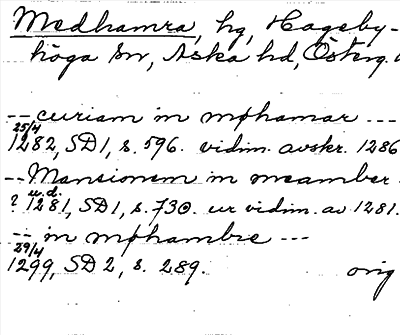 Medhamra, hg, Hageby-
höga sn, Aska hd, Österg.
-- curiam in mphamar ---
25/4
1282, SD1, s. 596. vidim. avskr. 1286
-- Mansionem in meambar
u.d.
? 1281, SD1, s. 730. ur vidim. av 1281.
-- in mphambre ---
29/4
1299, SD 2, s. 289. orig